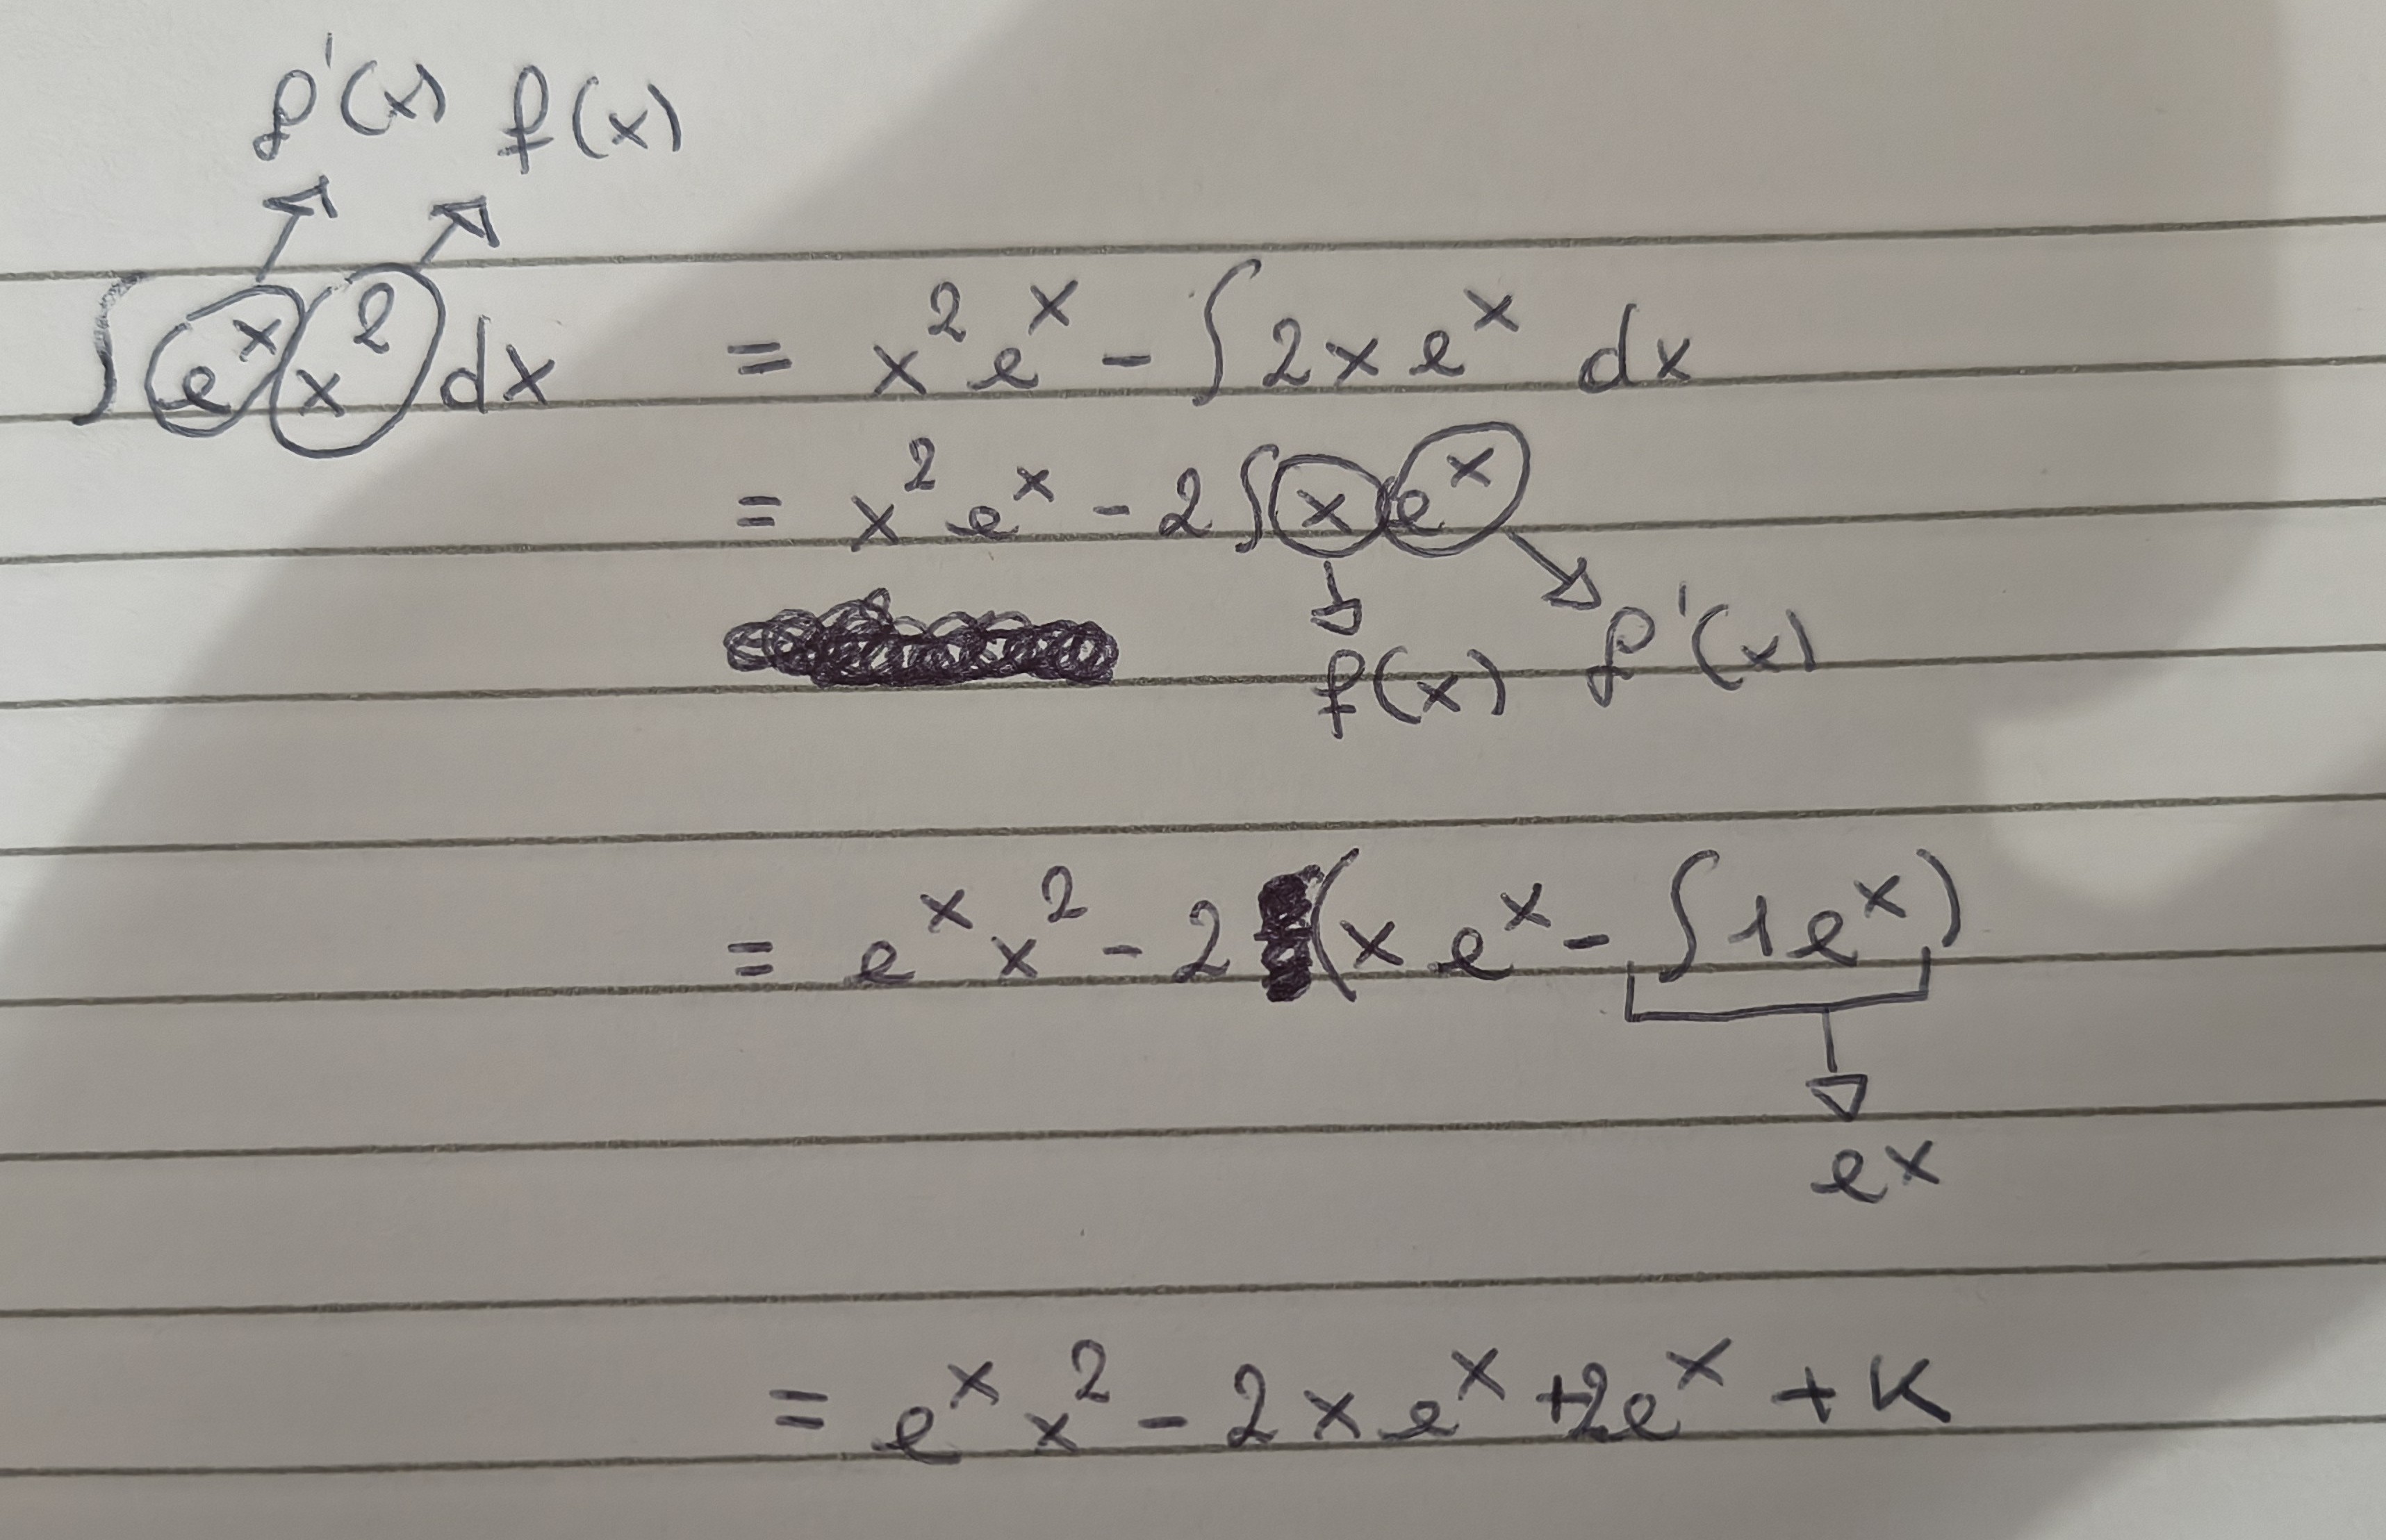 f'(x) f(x)
∫ e^x x^2 dx = x^2 e^x - ∫ 2x e^x dx
= x^2 e^x - 2 ∫ x e^x
f(x) f'(x)
= e^x x^2 - 2 (x e^x - ∫ 1 e^x)
ex
= e^x x^2 - 2x e^x + 2e^x + K